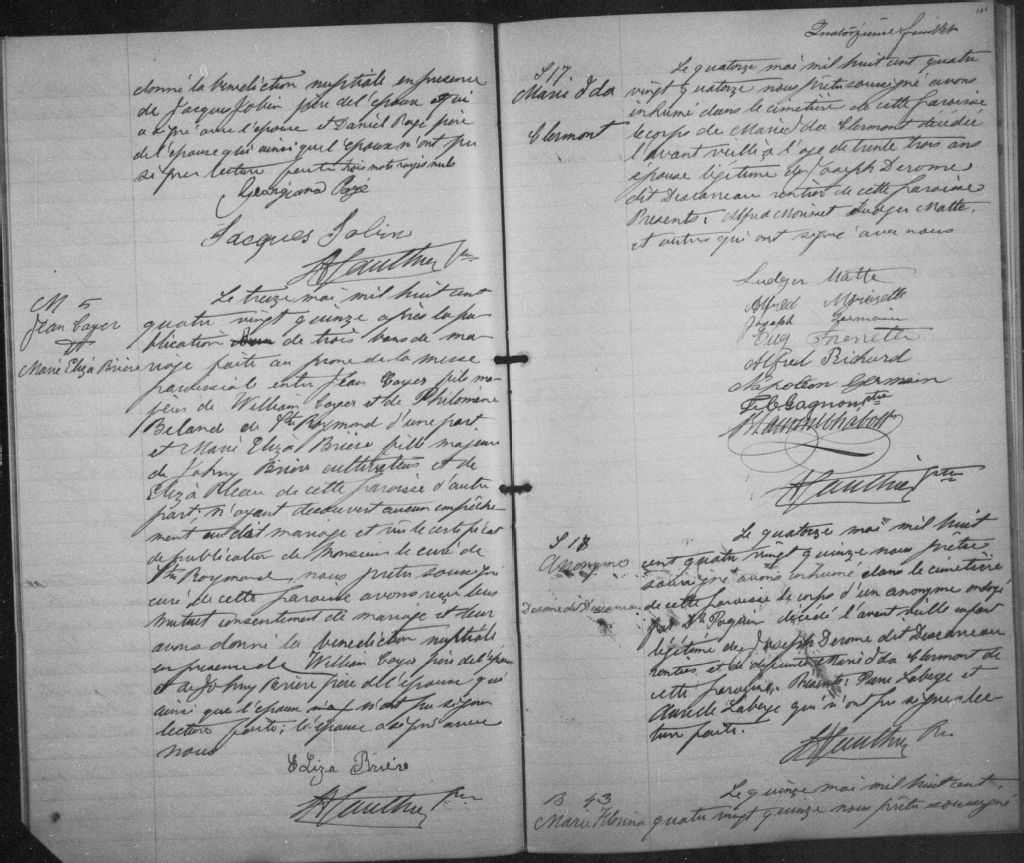 donné la bénédiction nuptiale en présence
de Jacques Jobin père de l'époux et qui
a signé avec l'épouse et Daniel Pagé père
de l'épouse qui ainsi que l'époux n'ont pu
signer lecture faite trois mots rayés nuls
Georgiana Pagé
Jacques Jobin
A Gauthier Ptre
M 5
Jean Cayer
&
Marie Eliza Brière
Le treize mai mil huit cent
quatre vingt quinze après la pu-
blication de trois bans de ma-
riage faite au prone de la messe
paroissiale entre Jean Cayer fils ma-
jeur de William Cayer et de Philomène
Beland de St Raymond d'une part
et Marie Eliza Brière fille majeure
de Johny Brière cultivateur et de
Eliza Pleau de cette paroisse d'autre
part, n'ayant découvert aucun empêche-
ment au dit mariage et vu le certificat
de publication de Monsieur le curé de
St Raymond, nous prêtre soussigné
curé de cette paroisse avons reçu leur
mutuel consentement de mariage et leur
avons donné la bénédiction nuptiale
en présence de William Cayer père de l'époux
et de Johny Brière père de l'épouse qui
ainsi que l'époux n'ont pu signer
lecture faite; l'épouse a signé avec
nous
Eliza Brière
A Gauthier Ptre
Quatorzième feuillet
S 17
Marie Ida
Clermont
Le quatorze mai mil huit cent quatre
vingt quatorze nous prêtre soussigné avons
inhumé dans le cimetière de cette paroisse
le corps de Marie Ida Clermont décédée
l'avant veille à l'age de trente trois ans
épouse légitime de Joseph Derome
dit Descarreau rentier de cette paroisse
Présents: Alfred Moriset Ludger Matte,
et autres qui ont signé avec nous
Ludger Matte
Alfred Morissette
Joseph Germain
Eug Frenette
Alfred Richard
Napoléon Germain
F. C. Gagnon ptre
A Gauthier Ptre
S 18
Anonyme
Derome dit Descarreau
Le quatorze mai mil huit
cent quatre vingt quinze nous prêtre
soussigné avons inhumé dans le cimetière
de cette paroisse le corps d'un anonyme ondoyé
par Dr Paquin décédé l'avant veille enfant
légitime de Joseph Derome dit Descarreau
rentier et de défunte Marie Ida Clermont de
cette paroisse. Présents: Pierre Laberge et
Aurèle Laberge qui n'ont pu signer lec-
ture faite.
A Gauthier Ptre
B 43
Marie Florina
Le quinze mai mil huit cent
quatre vingt quinze nous prêtre soussigné